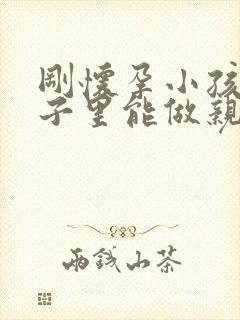 剛懷孕小孩
子里能做親
兩錢山茶